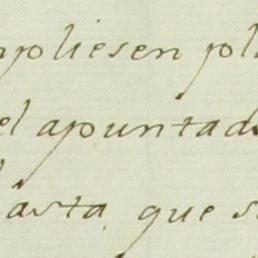 mpliesen pl
el apuntad
asta, que s